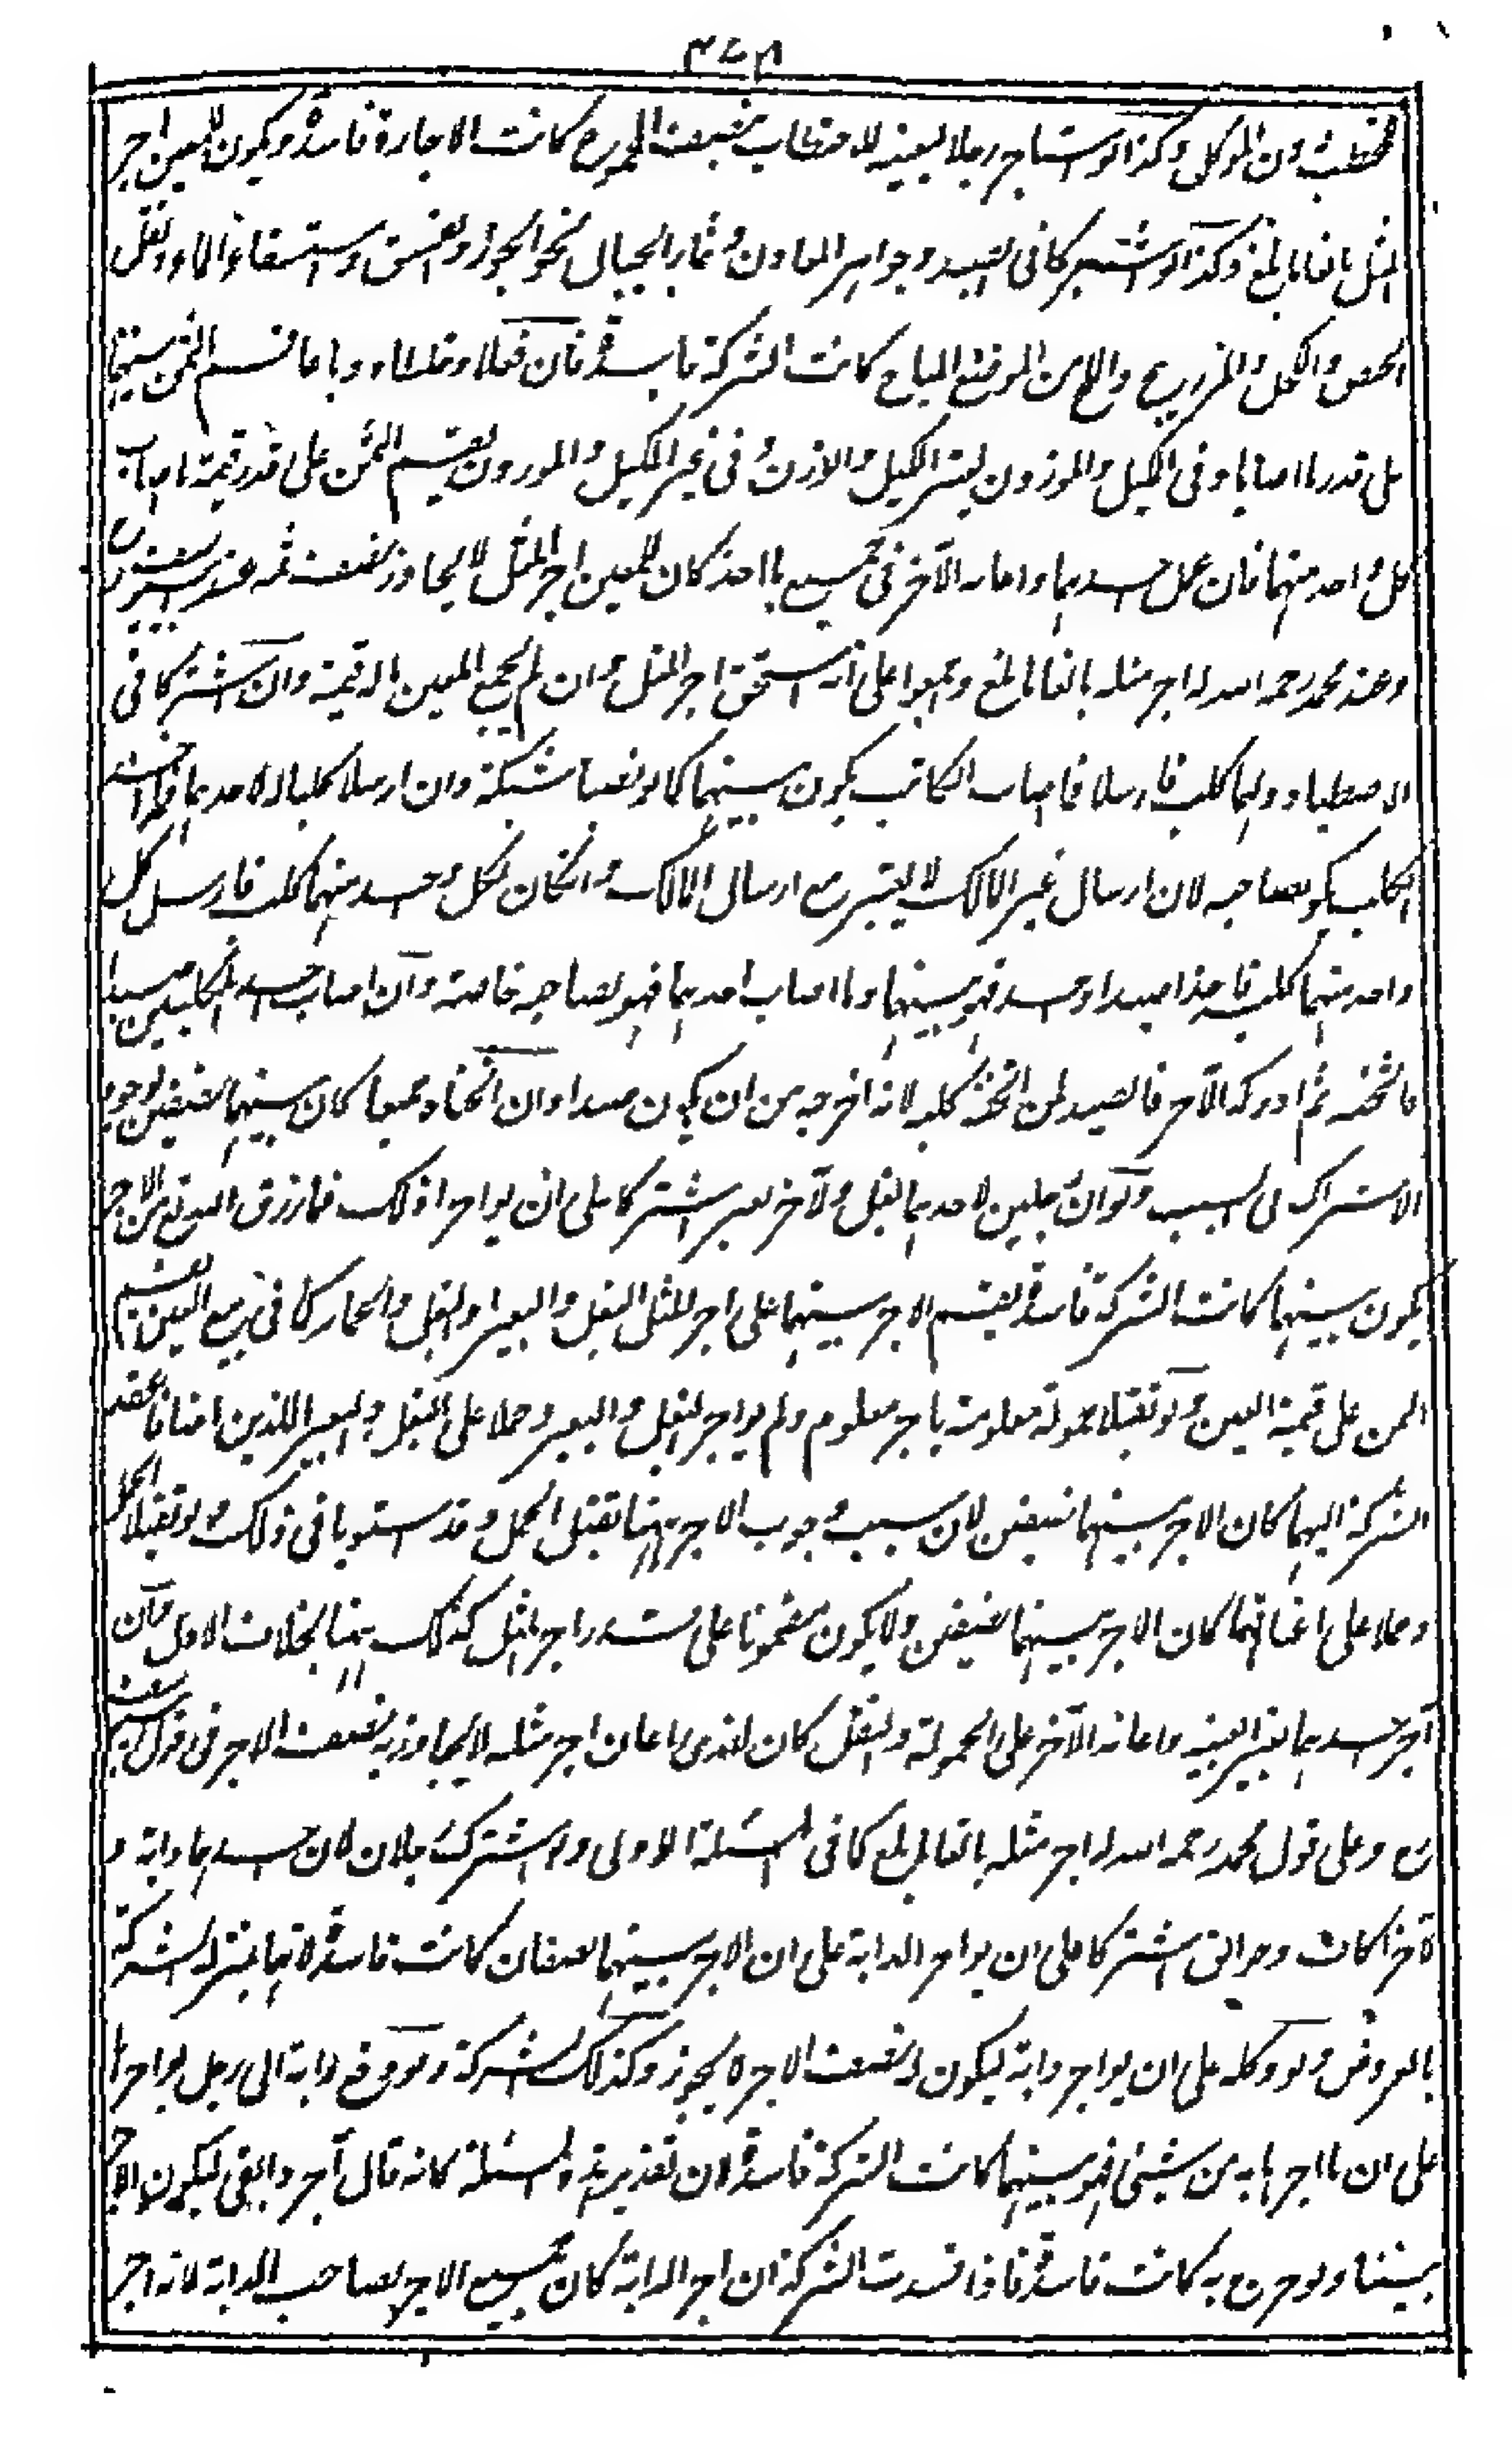 المحتطب دون الموكل وكذا لو استاجر رجلا ليعينه للاحتطاب بنصف المجموع كانت الاجارة فاسدة ويكون للمعين اجر
المثل بالغا ما بلغ وكذا لو اشتركا فى الصيد وجواهر المعادن وثمار الجبال نحو الجوز والفستق واستسقاء الماء ونقل
الجص والكحل والزرنيخ والملح من الموضع المباح كانت الشركة فاسدة فان فعلا وخلطاه وباعا قسم الثمن بينهما
على قدر ما اصابا وفى المكيل والموزون يعتبر الكيل والوزن وفى غير المكيل والموزون يقسم الثمن على قدر قيمة ما اصاب
كل واحد منهما فان عمل احدهما واعانه الآخر فى جميع ما اخذ كان للمعين اجر المثل لا يجاوز نصف ثمنه عند ابى يوسف رح
وعند محمد رحمه الله له اجر مثله بالغا ما بلغ واجمعوا على انه يستحق اجر المثل وان لم يجمع المعين ماله قيمة وان اشتركا فى
الاصطياد ولهما كلب فارسلا فما اصاب الكلب يكون بينهما كما لو نصبا شبكة وان ارسلا كلبا لاحدهما فما اخذ
الكلب يكون لصاحبه لان ارسال غير المالك لا يعتبر مع ارسال المالك وان كان لكل واحد منهما كلب فارسل كل
واحد منهما كلبه فاخذا صيدا واحدا فهو بينهما وما اصاب احدهما فهو لصاحبه خاصة وان اصاب احد الكلبين صيدا
فاثخنه ثم ادركه الآخر فالصيد لمن اثخنه كلبه لانه اخرجه من ان يكون صيدا وان اثخناه جميعا كان بينهما نصفين لوجود
الاشتراك فى السبب ولو ان رجلين لاحدهما بغل ولآخر بعير اشتركا على ان يواجرا ذلك فما رزق الله تع من الاجر
يكون بينهما كانت الشركة فاسدة يقسم الاجر بينهما على اجر المثل البغل والبعير او البغل والحمار كما فى بيع العين يقسم
الثمن على قيمة العين ولو تقبلا حمولة معلومة باجر معلوم ولم يواجر البغل والبعير وحملا على البغل والبعير اللذين اضافا عقد
الشركة اليهما كان الاجر بينهما نصفين لان سبب وجوب الاجر ههنا تقبل الحمل وقد استويا فى ذلك ولو تقبلا الحمل
وحملا على اعناقهما كان الاجر بينهما نصفين ولا يكون مضمونا على قدر اجر المثل كذلك ههنا بخلاف الاول فان
آجر احدهما بغير العينه واعانه الآخر على الحمولة والنقل كان للذى اعان اجر مثله لا يجاوز به نصف الاجر فى قول ابى يوسف
رح وعلى قول محمد رحمه الله له اجر مثله بالغا ما بلغ كما فى المسئلة الاولى ولو اشترك رجلان لاحدهما دابة و
لآخر اكاف وجوالق اشتركا على ان يواجر الدابة على ان الاجر بينهما نصفان كانت فاسدة لانها بمنزلة الشركة
بالعروض ولو وكله على ان يواجر دابة ليكون له نصف الاجر لا يجوز وكذلك الشركة ولو دفع دابة الى رجل ليواجرها
على ان ما اجرها به من شيئ فهو بينهما كانت الشركة فاسدة لان تقدير هذه المسئلة كانه قال آجر دابتى ليكون الاجر
بيننا ولو صرح به كانت فاسدة فاذا فسدت الشركة ان اجر الدابة كان جميع الاجر لصاحب الدابة لانه اجر